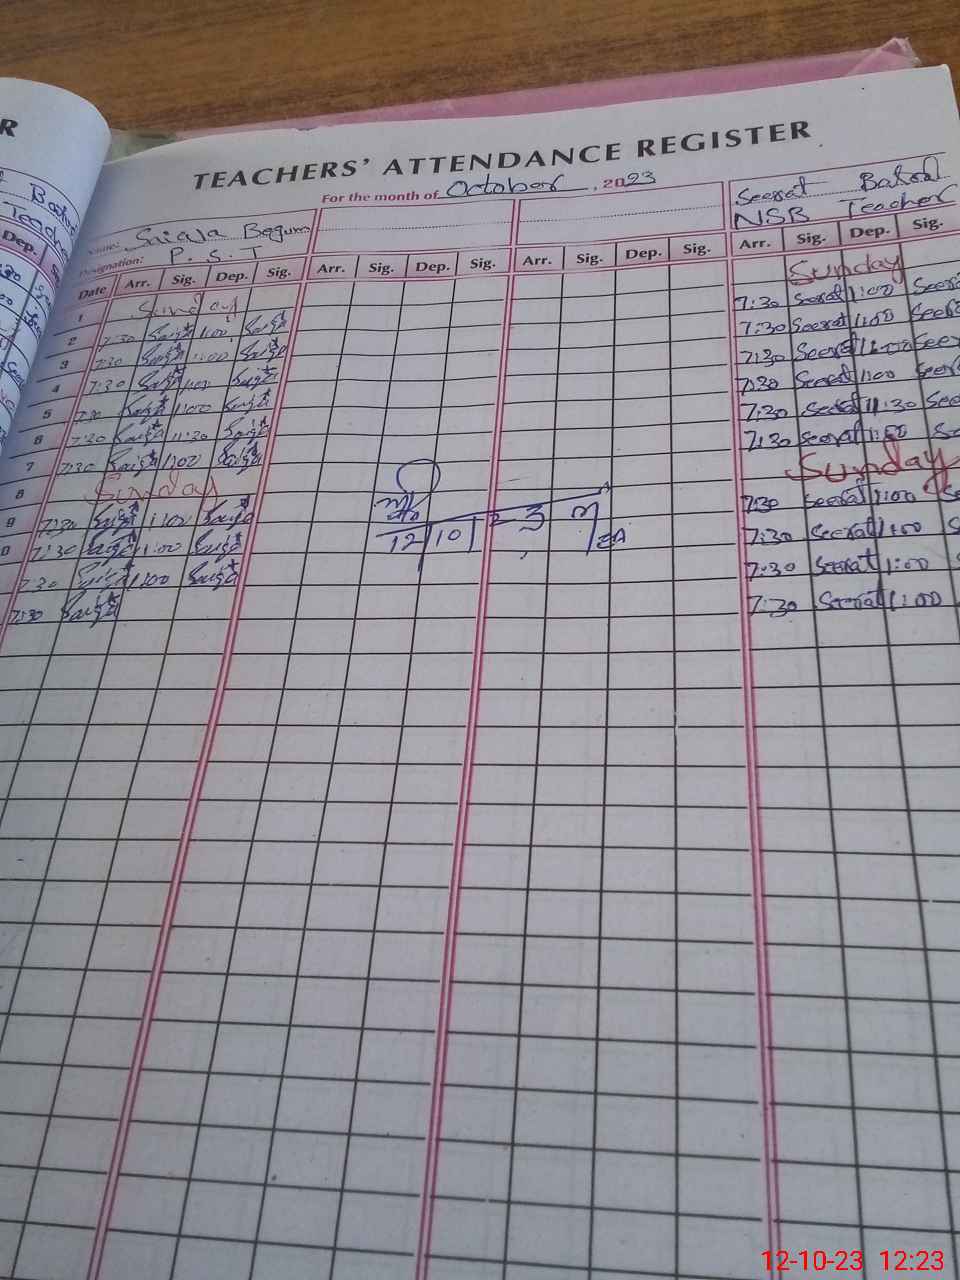 R
TEACHERS' ATTENDANCE REGISTER
For the month of October, 2023
Name: Saiqa Begum
Seerat Batool
Designation: P.S.T
NSB Teacher
Date Arr. Sig. Dep. Sig. Arr. Sig. Dep. Sig. Arr. Sig. Dep. Sig. Arr. Sig. Dep. Sig.
1 Sunday Sunday
2 7:30 Saiqa 1:00 Saiqa 7:30 Seerat 1:00 Seerat
3 7:30 Saiqa 1:00 Saiqa 7:30 Seerat 1:00 Seerat
4 7:30 Saiqa 1:00 Saiqa 7:30 Seerat 1:00 Seer
5 7:30 Saiqa 1:00 Saiqa 7:30 Seerat 1:00 Seer
6 7:30 Saiqa 11:30 Saiqa 7:30 Seerat 11:30 See
7 7:30 Saiqa 1:00 Saiqa 7:30 Seerat 1:00 S
8 Sunday Sunday
9 7:30 Saiqa 1:00 Saiqa 7:30 Seerat 1:00 Se
0 7:30 Saiqa 1:00 Saiqa 7:30 Seerat 1:00 S
7:30 Saiqa 1:00 Saiqa 7:30 Seerat 1:00 S
7:30 Saiqa 7:30 Seerat 1:00 S
12/10/23
12-10-23 12:23